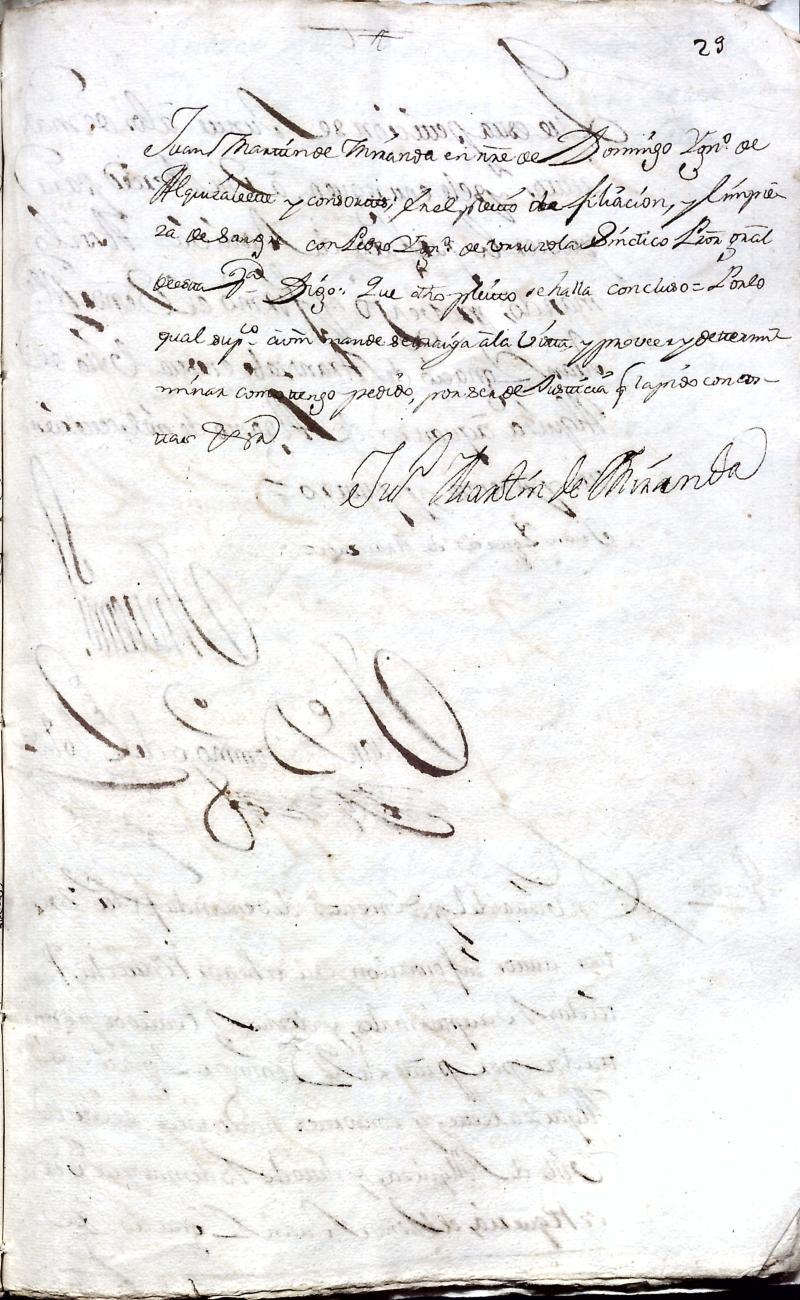 29
Juan Martin de Miranda en nre de Domingo Ygn.º de
Alquizaleette y consortes, en el pleito de filiacion, y limpie-
za de Sangre con Pedro Ygn.º de Sindico Pror gral
de esta Digo: Que dho pleito se halla concluso = Por lo
qual sup.co a Vm mande se traiga a la Vista, y proveer y determi-
minar como tengo pedido, por ser de Justicia q la pido con cos-
tas
Juº Martin de Miranda